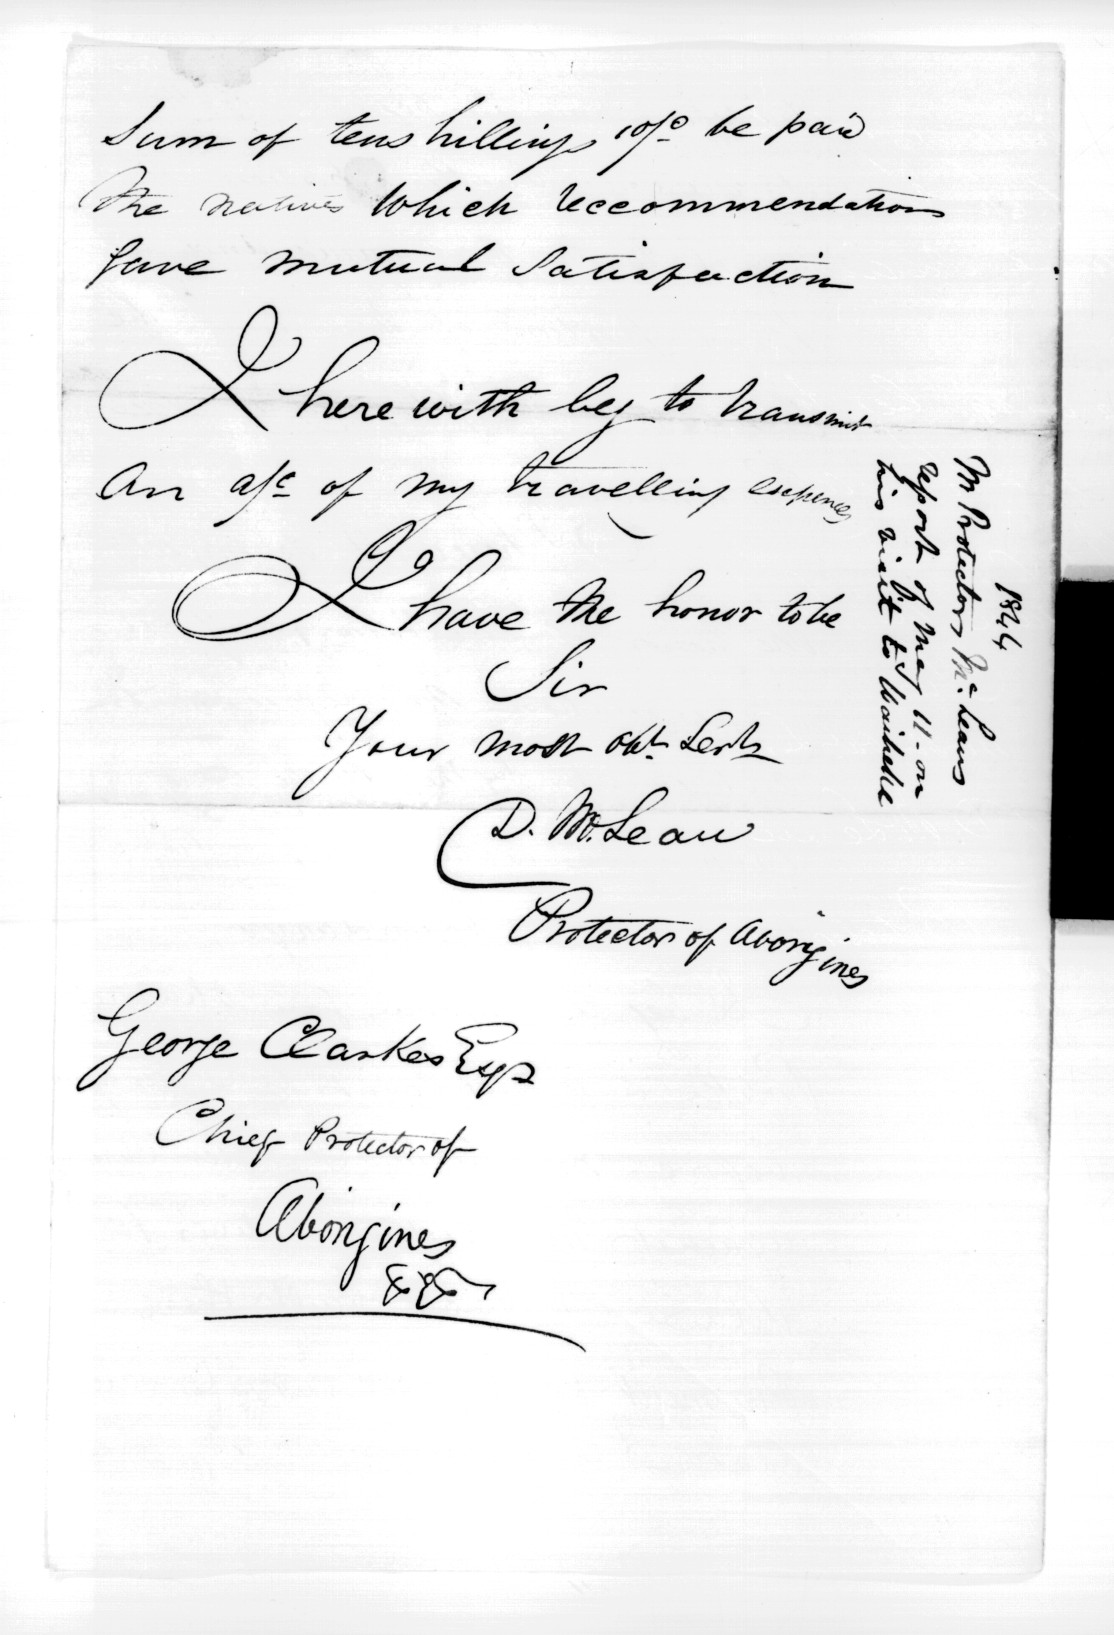 Sum of ten shillings 10/0 be paid
the natives which reccommendations
gave mutual satisfaction
I herewith beg to transmit
an a/c of my travelling expences
I have the honor to be
Sir
Your most obt. Servt
D. McLean
Protector of Aborigines
George Clarke Esqr
Chief Protector of
Aborigines
&c &c
1844
Mr Protector McLeans
report of May 11 - on
his visit to Waiheke